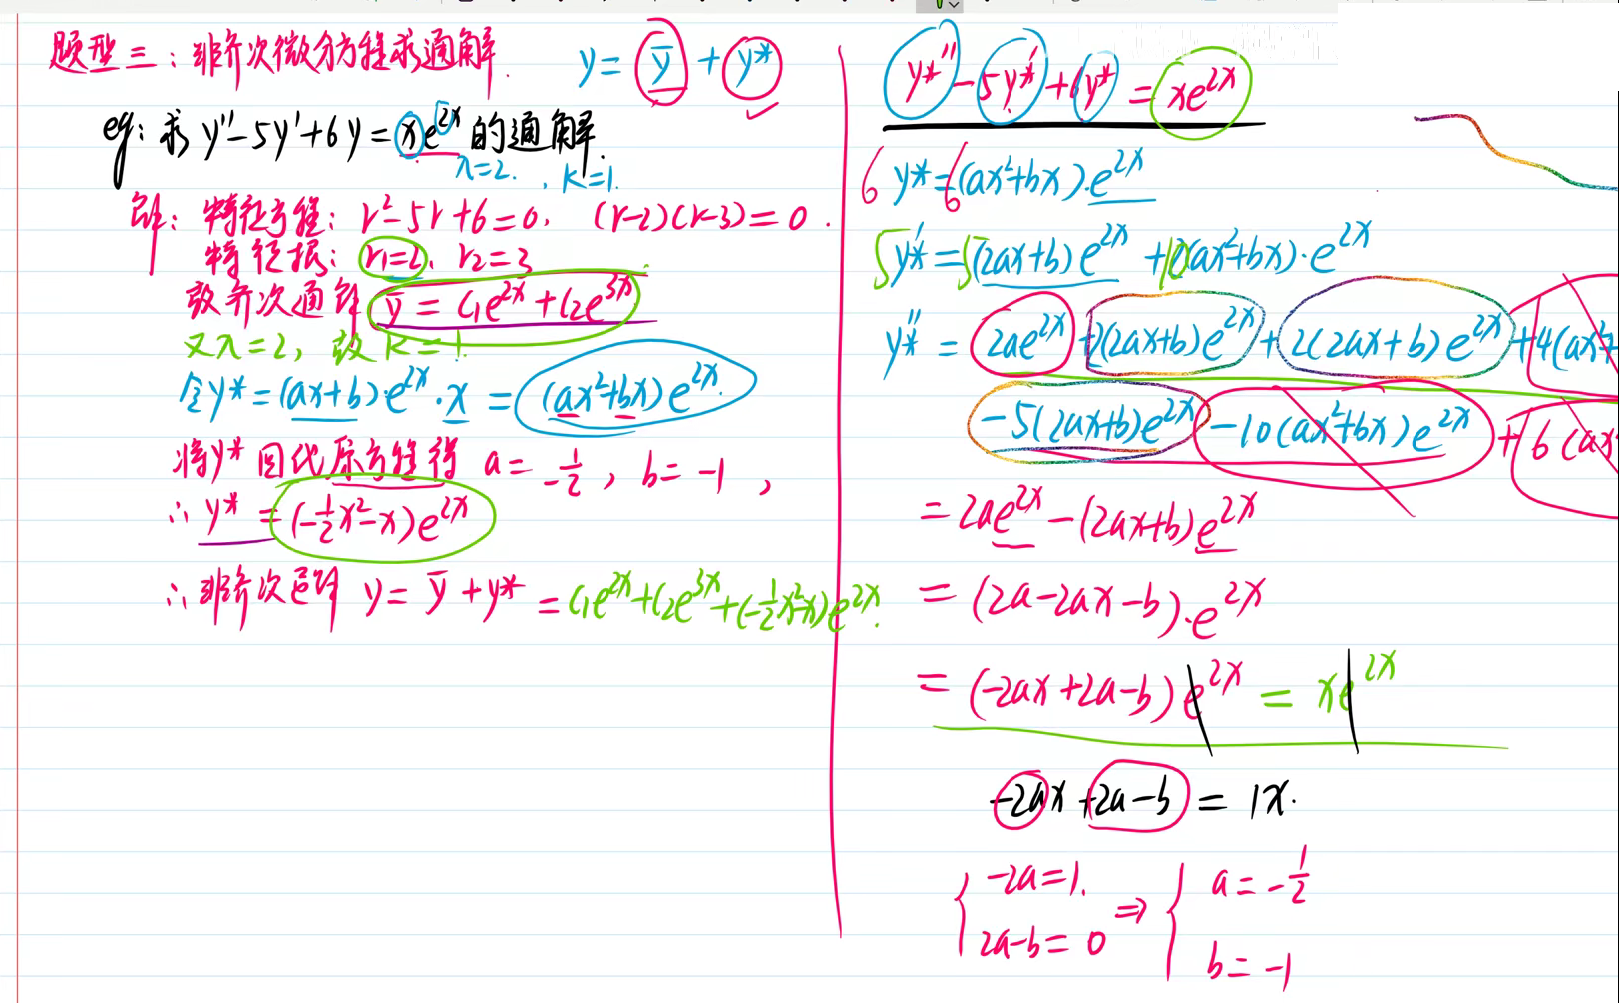 题型三：非齐次微分方程求通解. y = ȳ + y*
eg: 求 y''-5y'+6y = xe^{2x} 的通解.
λ=2. , k=1.
解: 特征方程: r²-5r+6=0, (r-2)(r-3)=0.
特征根: r₁=2, r₂=3
故齐次通解 ȳ = C₁e^{2x}+C₂e^{3x}
又λ=2, 故 k=1.
令y* = (ax+b)·e^{2x}·x = (ax²+bx)e^{2x}.
将y* 回代原方程得 a = -1/2, b = -1,
∴ y* = (-1/2x²-x)e^{2x}
∴ 非齐次通解 y = ȳ + y* = C₁e^{2x}+C₂e^{3x}+(-1/2x²-x)e^{2x}.
y*''-5y*'+6y* = xe^{2x}
6 y* = 6(ax²+bx)·e^{2x}
5y*' = 5(2ax+b)e^{2x} + 10(ax²+bx)·e^{2x}
y*'' = 2ae^{2x} + 2(2ax+b)e^{2x} + 2(2ax+b)e^{2x} + 4(ax²+
-5(2ax+b)e^{2x} -10(ax²+bx)e^{2x} + 6(ax
= 2ae^{2x} - (2ax+b)e^{2x}
= (2a-2ax-b)·e^{2x}
= (-2ax+2a-b)e^{2x} = xe^{2x}
-2ax+2a-b = 1x.
{ -2a=1. ⇒ { a = -1/2
2a-b=0 b = -1